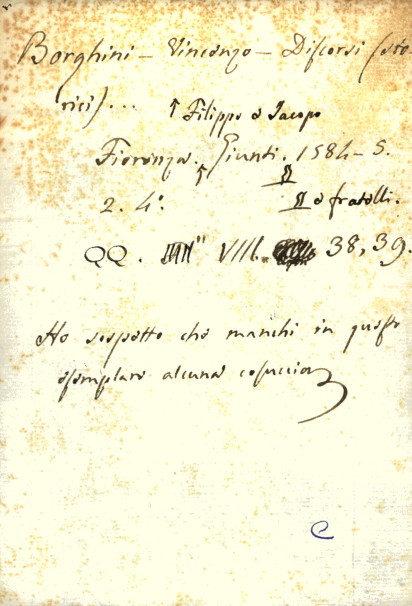 Borghini – Vincenzo – Discorsi (sto
rici) . . . ↑ Filippo e Jacopo
Fiorenza. Giunti. 1584–5.
2. 4°. e fratelli.
QQ. VIII. 38, 39.
Ho sospetto che manchi in questo
esemplare alcuna cosuccia
C